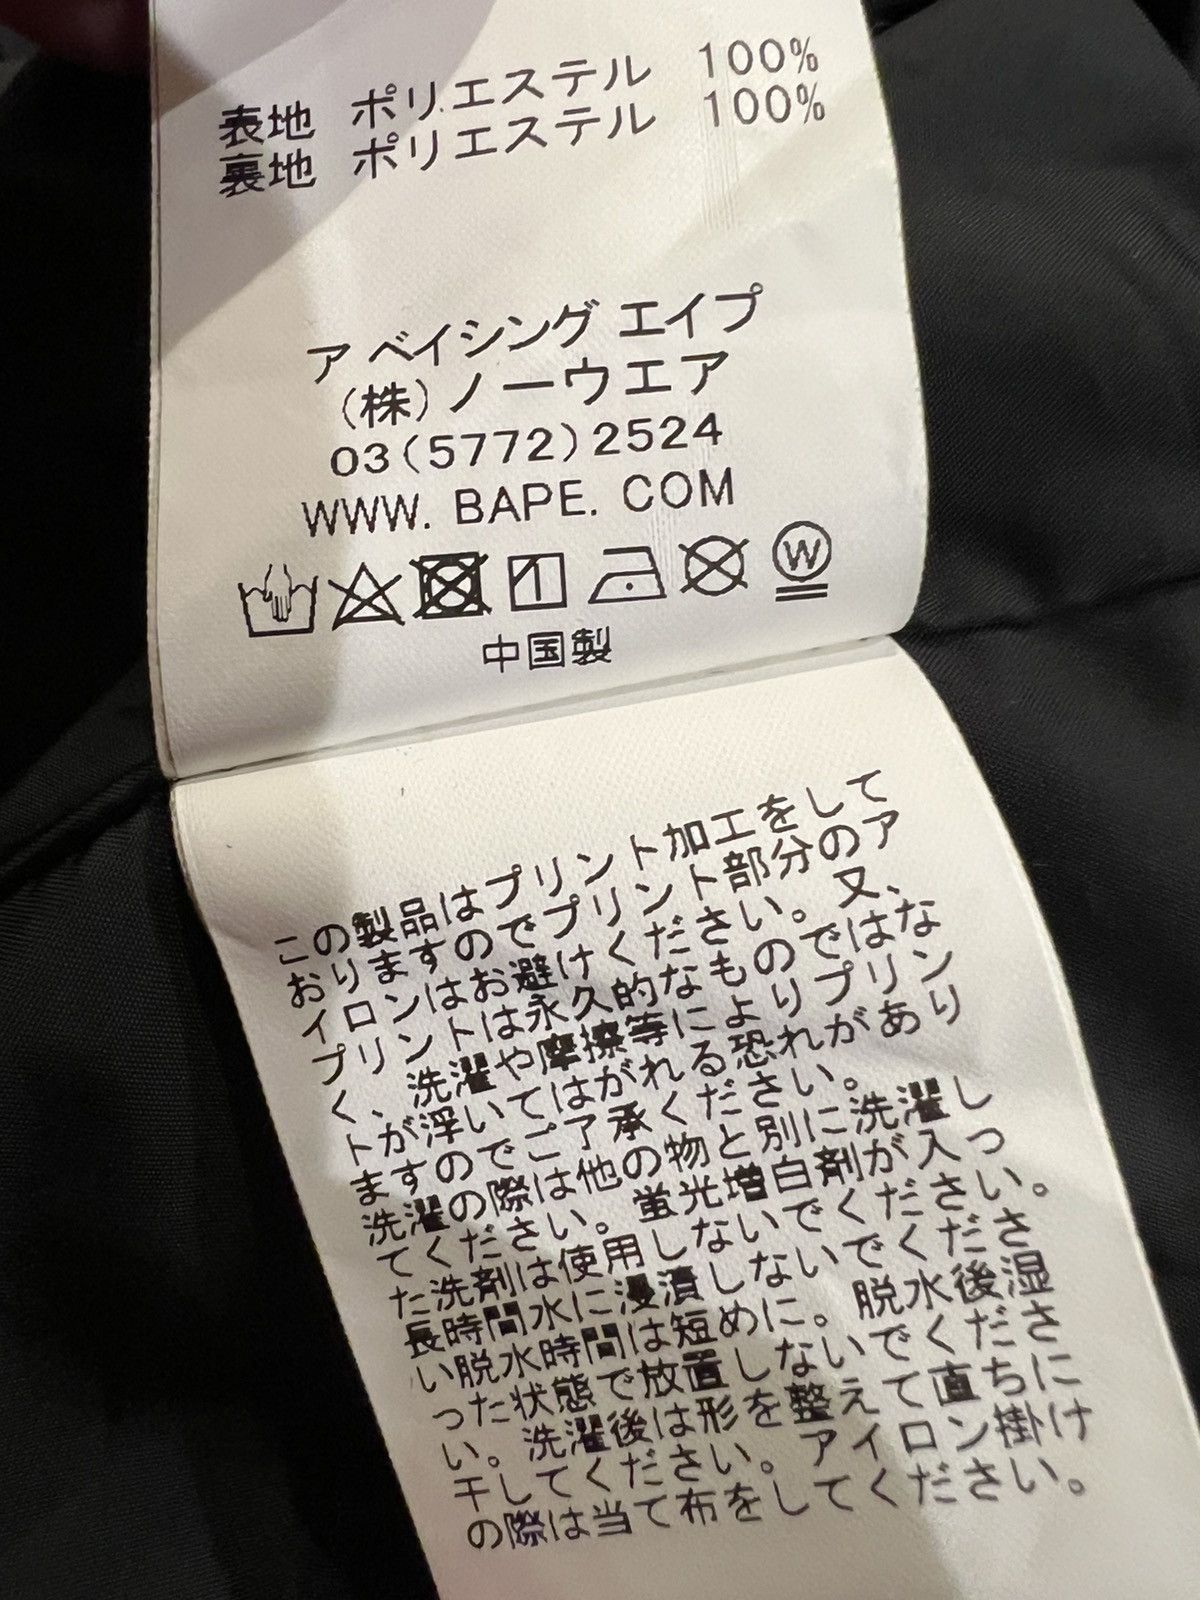 表地 ポリエステル 100%
裏地 ポリエステル 100%
ア ベイシング エイプ
(株)ノーウエア
03(5772)2524
WWW. BAPE. COM
W
中国製
この製品はプリント加工をして
おりますのでプリント部分のア
イロンはお避けください。又、
プリントは永久的なものではな
く、洗濯や摩擦等によりプリン
トが浮いてはがれる恐れがあり
ますのでご了承ください。
洗濯の際は他の物と別に洗濯し
てください。蛍光増白剤が入っ
た洗剤は使用しないでください。
長時間水に浸漬しないでくださ
い脱水時間は短めに。脱水後湿
った状態で放置しないでくださ
い。洗濯後は形を整えて直ちに
干してください。アイロン掛け
の際は当て布をしてください。